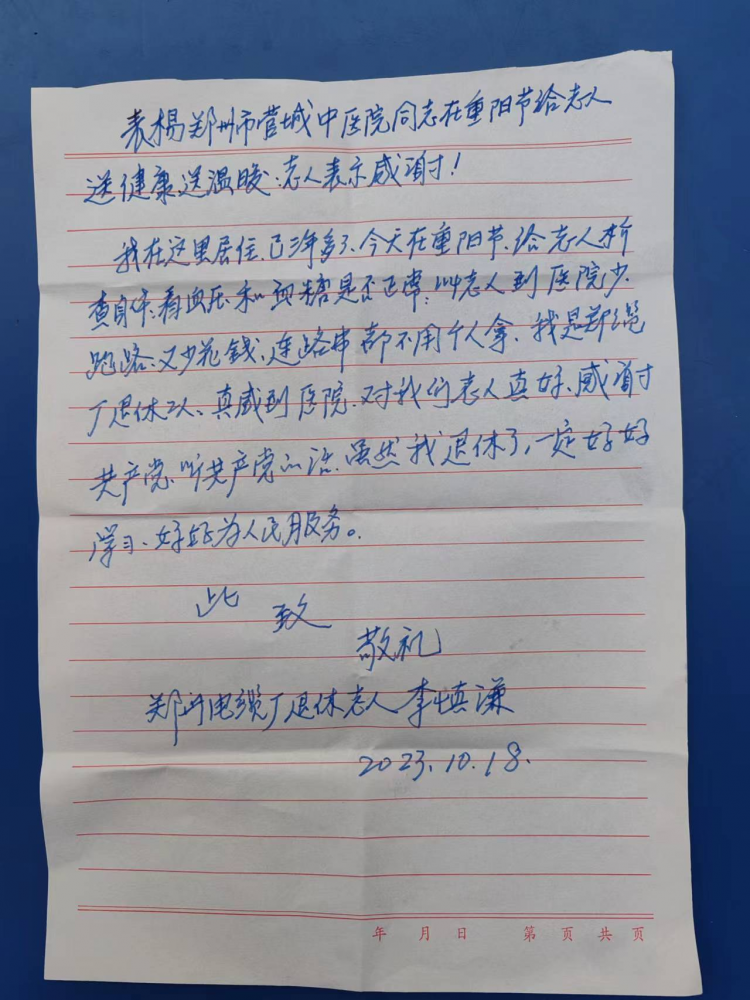 表揚郑州市管城中医院同志在重阳节给老人
送健康送温暖;老人表示感谢!
我在这里居住、已3年多了、今天在重阳节、给老人折
查身体、看血压和血糖是否正常;叫老人到医院少
跑路、又少花钱、连路串都不用个人拿、我是郑缆
厂退休工人、真感到医院、对我们老人真好、感谢
共产党、听共产党的话、虽然我退休了,一定好好
学习、好好为人民服务。
此致
敬礼
郑州电缆厂退休老人李慎谦
2023.10.18.
年 月 日 第 页 共 页